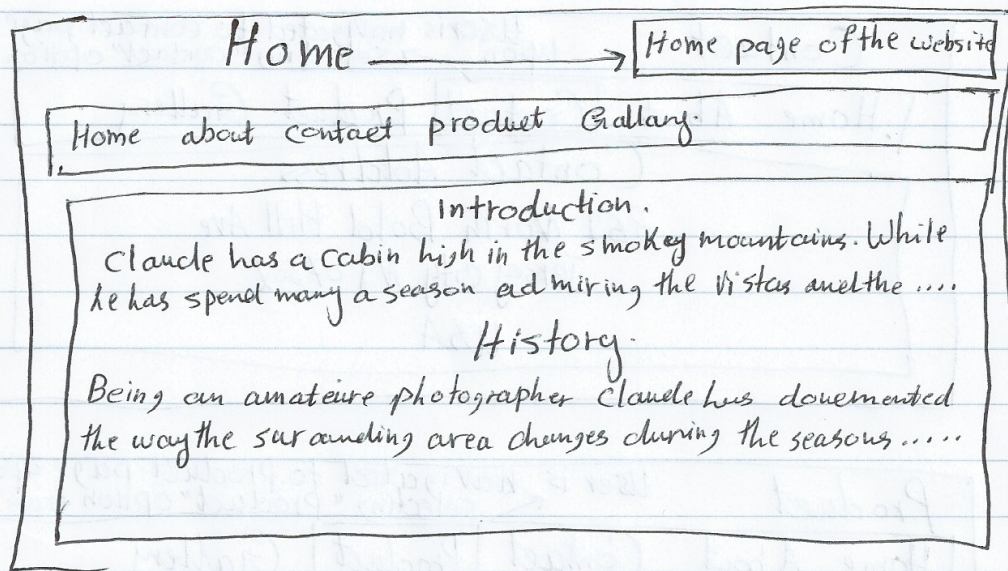 Home
Home page of the website
Home about contact product Gallary.
Introduction.
Claude has a cabin high in the smokey mountains. While
he has spend many a season admiring the vistas and the ....
History.
Being an amateire photographer Claude has douemented
the way the surounding area changes during the seasons .....